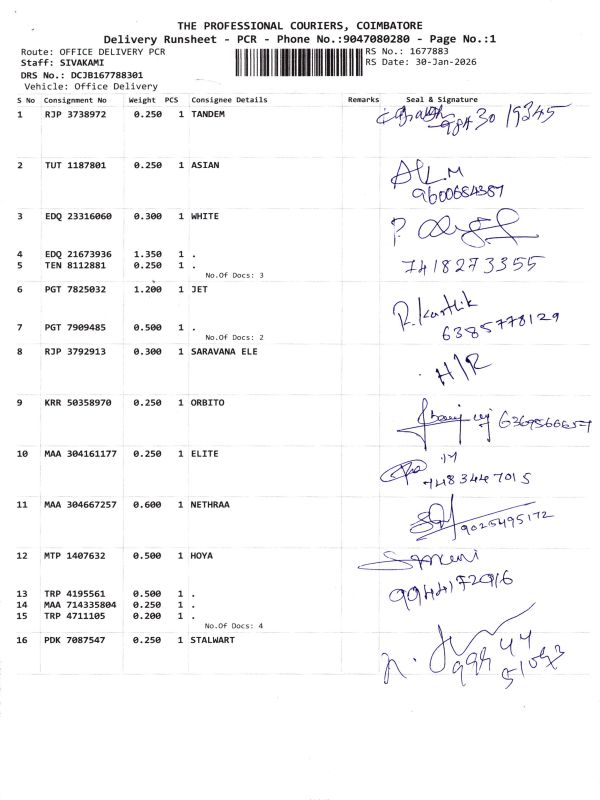 THE PROFESSIONAL COURIERS, COIMBATORE
Delivery Runsheet - PCR - Phone No.:9047080280 - Page No.:1
Route: OFFICE DELIVERY PCR RS No.: 1677883
Staff: SIVAKAMI RS Date: 30-Jan-2026
DRS No.: DCJB167788301
Vehicle: Office Delivery
S No Consignment No Weight PCS Consignee Details Remarks Seal & Signature
1 RJP 3738972 0.250 1 TANDEM
2 TUT 1187801 0.250 1 ASIAN
9600684387
3 EDQ 23316060 0.300 1 WHITE
4 EDQ 21673936 1.350 1 .
5 TEN 8112881 0.250 1 . 7418273355
No.Of Docs: 3
6 PGT 7825032 1.200 1 JET
R. Karthik
6385778129
7 PGT 7909485 0.500 1 .
No.Of Docs: 2
8 RJP 3792913 0.300 1 SARAVANA ELE
H/R
9 KRR 50358970 0.250 1 ORBITO
10 MAA 304161177 0.250 1 ELITE
9483447015
11 MAA 304667257 0.600 1 NETHRAA
9025495172
12 MTP 1407632 0.500 1 HOYA
9944172916
13 TRP 4195561 0.500 1 .
14 MAA 714335804 0.250 1 .
15 TRP 4711105 0.200 1 .
No.Of Docs: 4
16 PDK 7087547 0.250 1 STALWART